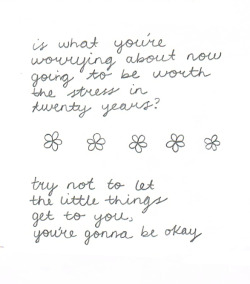 is what you're
worrying about now
going to be worth
the stress in
twenty years?
try not to let
the little things
get to you,
you're gonna be okay